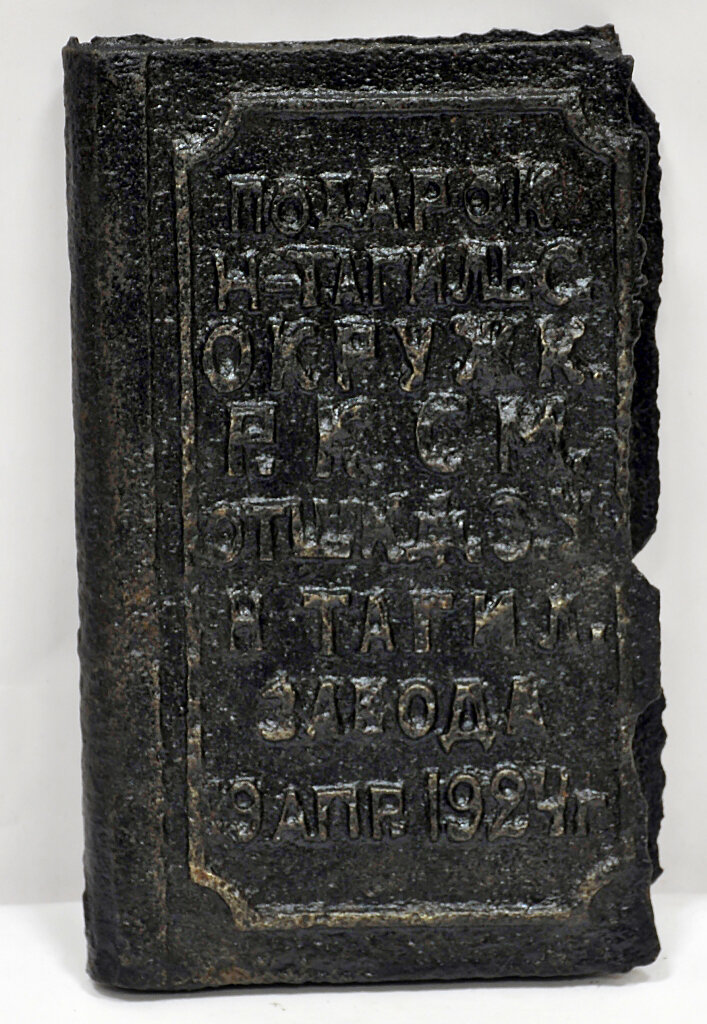 ПОДАРОК
Н-ТАГИЛЬС.
ОКРУЖК.
Р.К.С.М.
Н-ТАГИЛ.
ЗАВОДА
9 АПР. 1924 г